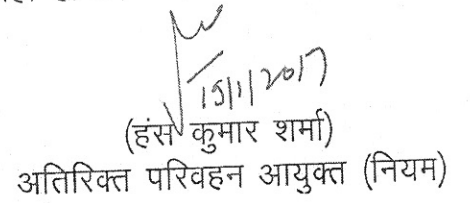 19/1/2017
(हंस कुमार शर्मा)
अतिरिक्त परिवहन आयुक्त (नियम)